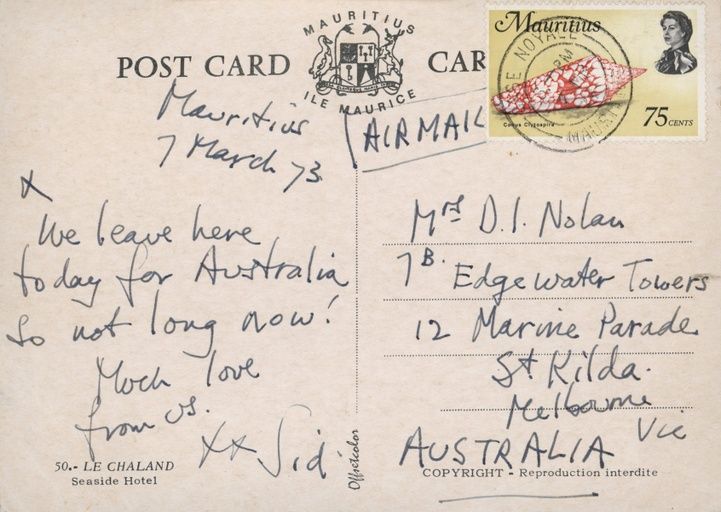 MAURITIUS
POST CARD
CAR
ILE MAURICE
Mauritius
75 CENTS
Conus Clytospira
AIRMAIL
Mauritius
7 March 73
x
We leave here
today for Australia
So not long now!
Much love
from us.
xx Sid
50.- LE CHALAND
Seaside Hotel
Offsetcolor
Mrs D.I. Nolan
7B. Edgewater Towers
12 Marine Parade
St Kilda.
Melbourne
Vic
AUSTRALIA
COPYRIGHT - Reproduction interdite